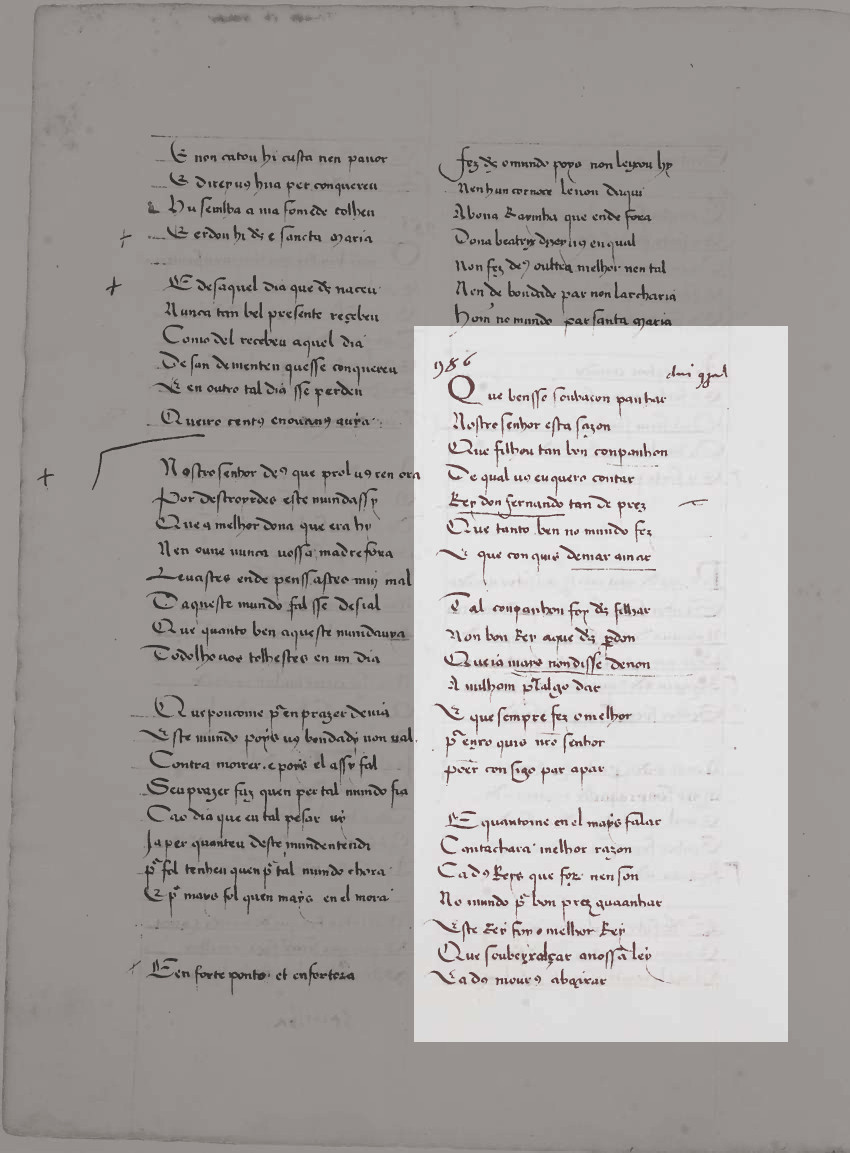 E non catou hi custa nen pauor
E direyuꝯ hũa per conquereu
Hu semilha a ma fomede tolheu
E erdon hi dẽ e sancta maria
E desaquel dia que dẽ naceu
Nunca tan bel presente reçebeu
Como del recebeu aquel dia
De san dementen quesse conquereu
E en outro tal dia sse perdeu
Queiro centꝯ enouanꝯ auya
Nostro senhor deꝯ que prol uꝯ ten ora
Por destroyrdes este mundassy
Que a melhor dona que era hy
Nen ouue nunca uossa madre fora
Leuastes ende penssastes muj mal
Daqueste mundo fal sse desial
Que quanto ben aqueste mundauya
Todolhouos tolhestes en un dia
Que poucome p̃ en prazer deuia
Este mundo poys uꝯ bondady non ual
Contra morrer. e poys el assy fal
Seu prazer faz quen per tal mundo fia
Cao dia que eu tal pesar uy
Ja per quanteu deste mundentendi
p̃ fol tenheu quen p̃ tal mundo chora
E p̃ mays fol quen mays en el mora
E en forte ponto et en fortora
fez dẽ o mundo poys non leyxou hy
Nenhun cornoce lenon daqui
A bona Raynha que ende fora
Dona beatriz direyuꝯ en qual
Non fez deꝯ oultra melhor nen tal
Nen de bondade par non lacharia
Home no mundo par santa maria
1986
Que bensse soubacon pantar
Nostro senhor esta sazon
Que filhou tan bon conpanhon
De qual uꝯ eu quero contar
Rey don fernando tan de prez
Que tanto ben no mundo fez
E que conquis demar amar
Tal conpanhon foy dẽ filhar
Non bon Rey aque dẽ p̱don
Queia mays nondisse denon
A nulhom p̃ lalgo dar
E que sempre fez o melhor
p̃ en xo quis nr̃o senhor
põer con sigo par apar
E quantome en el mays falar
Tantachara melhor razon
Ca dꝯ Reys que foz nen son
No mundo p̃ bon prez guaanhar
Este Rey foy o melhor Rey
Que soubeyxalçar anossa ley
E a dꝯ mourꝯ abaixar